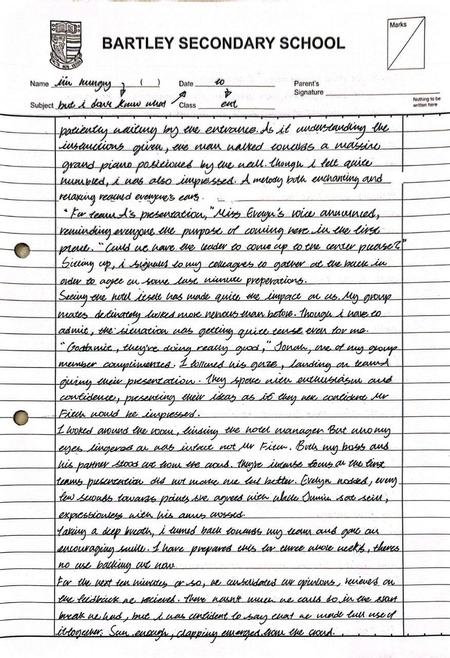 BARTLEY SECONDARY SCHOOL
Marks
Name im hungry ( ) Date to
Parent's
Signature
Subject but i don't know what Class eat
Nothing to be
written here
patiently waiting by the entrance. As if understanding the
instructions given, the man walked towards a massive
grand piano positioned by the wall. Though i felt quite
humbled, i was also impressed. A melody both enchanting and
relaxing reached everyone's ears.
"For team A's presentation," Miss Evelyn's voice announced,
reminding everyone the purpose of coming here in the first
place. "Could we have the leader to come up to the center please?"
Sitting up, i signaled to my colleagues to gather at the back in
order to agree on some last minute preperations.
Seeing the hotel itself has made quite the impact on us. My group
mates definitely looked more nervous than before. Though i have to
admit, the situation was getting quite tense even for me.
"Goddamit, they're doing really good," Jonah, one of my group
member complimented. I followed his gaze, landing on team A
giving their presentation. They spoke with enthusiasm and
confidence, presenting their ideas as if they were confident Mr
Finch would be impressed.
I looked around the room, finding the hotel manager. But who my
eyes lingered on was infact not Mr Finch. Both my boss and
his partner stood out from the crowd. They're intense focus on the first
teams presentation did not make me feel better. Evelyn nodded, every
few seconds towards points she agreed with while sat still,
expressionless with his arms crossed.
Taking a deep breath, i turned back towards my team and gave an
encouraging smile. I have prepared this for three whole weeks, theres
no use backing out now.
For the next ten minutes or so, we consolidated our opinions, on
the feedback we recieved. There wasn't much we could do in the short
break we had, but i was confident to say that we made full use of
it together. Soon enough, clapping emerged from the crowd.